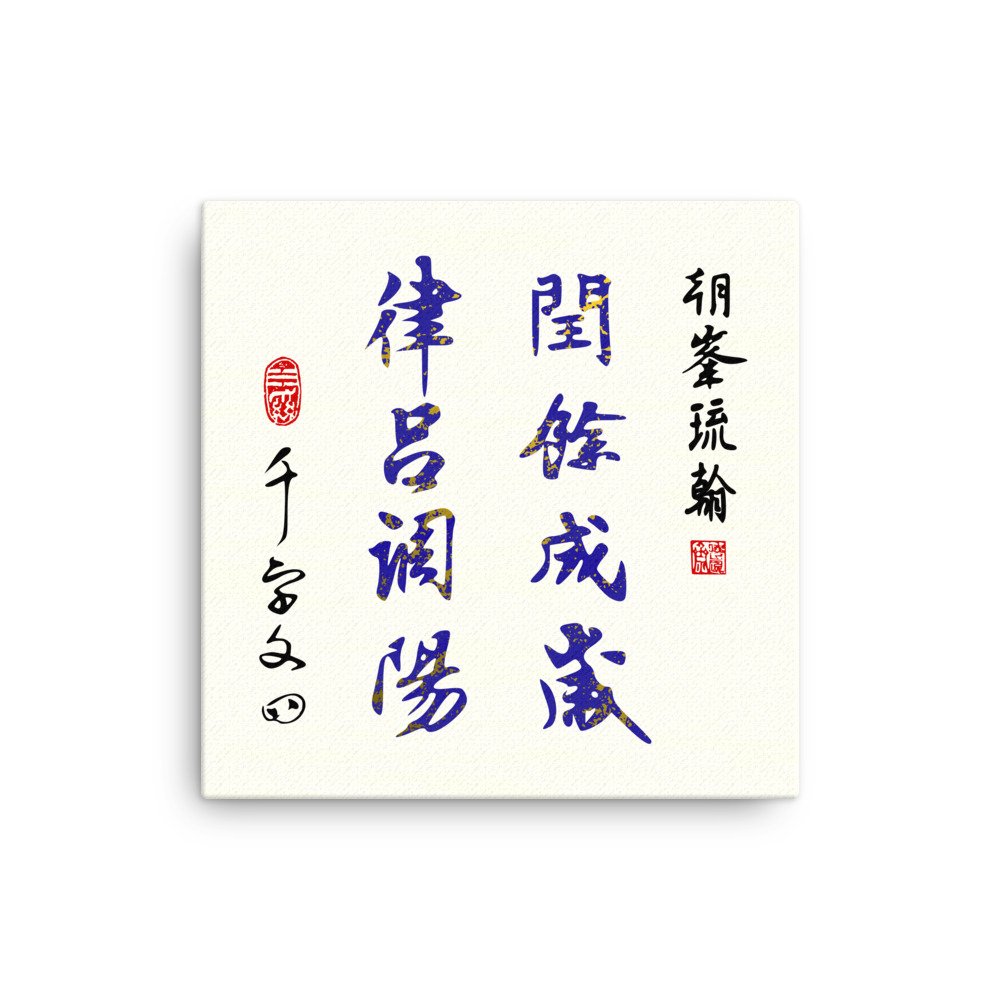 朝峯琉翰
閏餘成歲
律呂调陽
千字文四